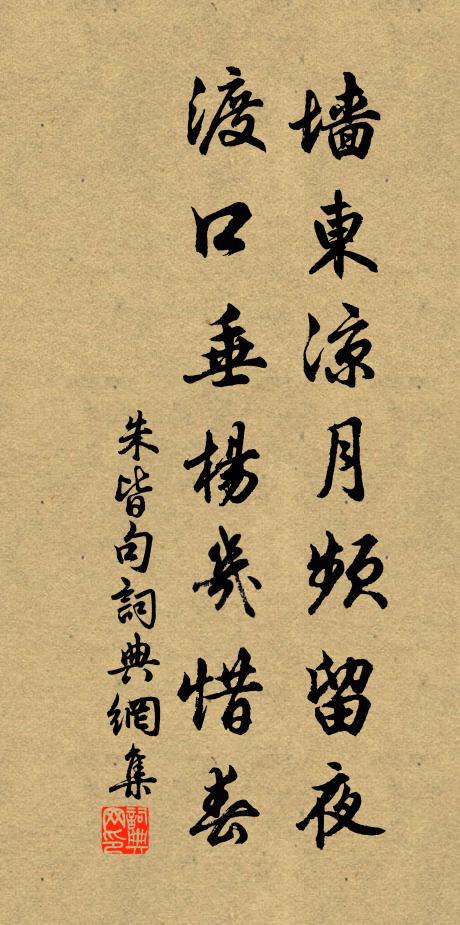 墙東涼月頻留夜
渡口垂楊幾惜春
朱皆句詞典網集
詞典網印